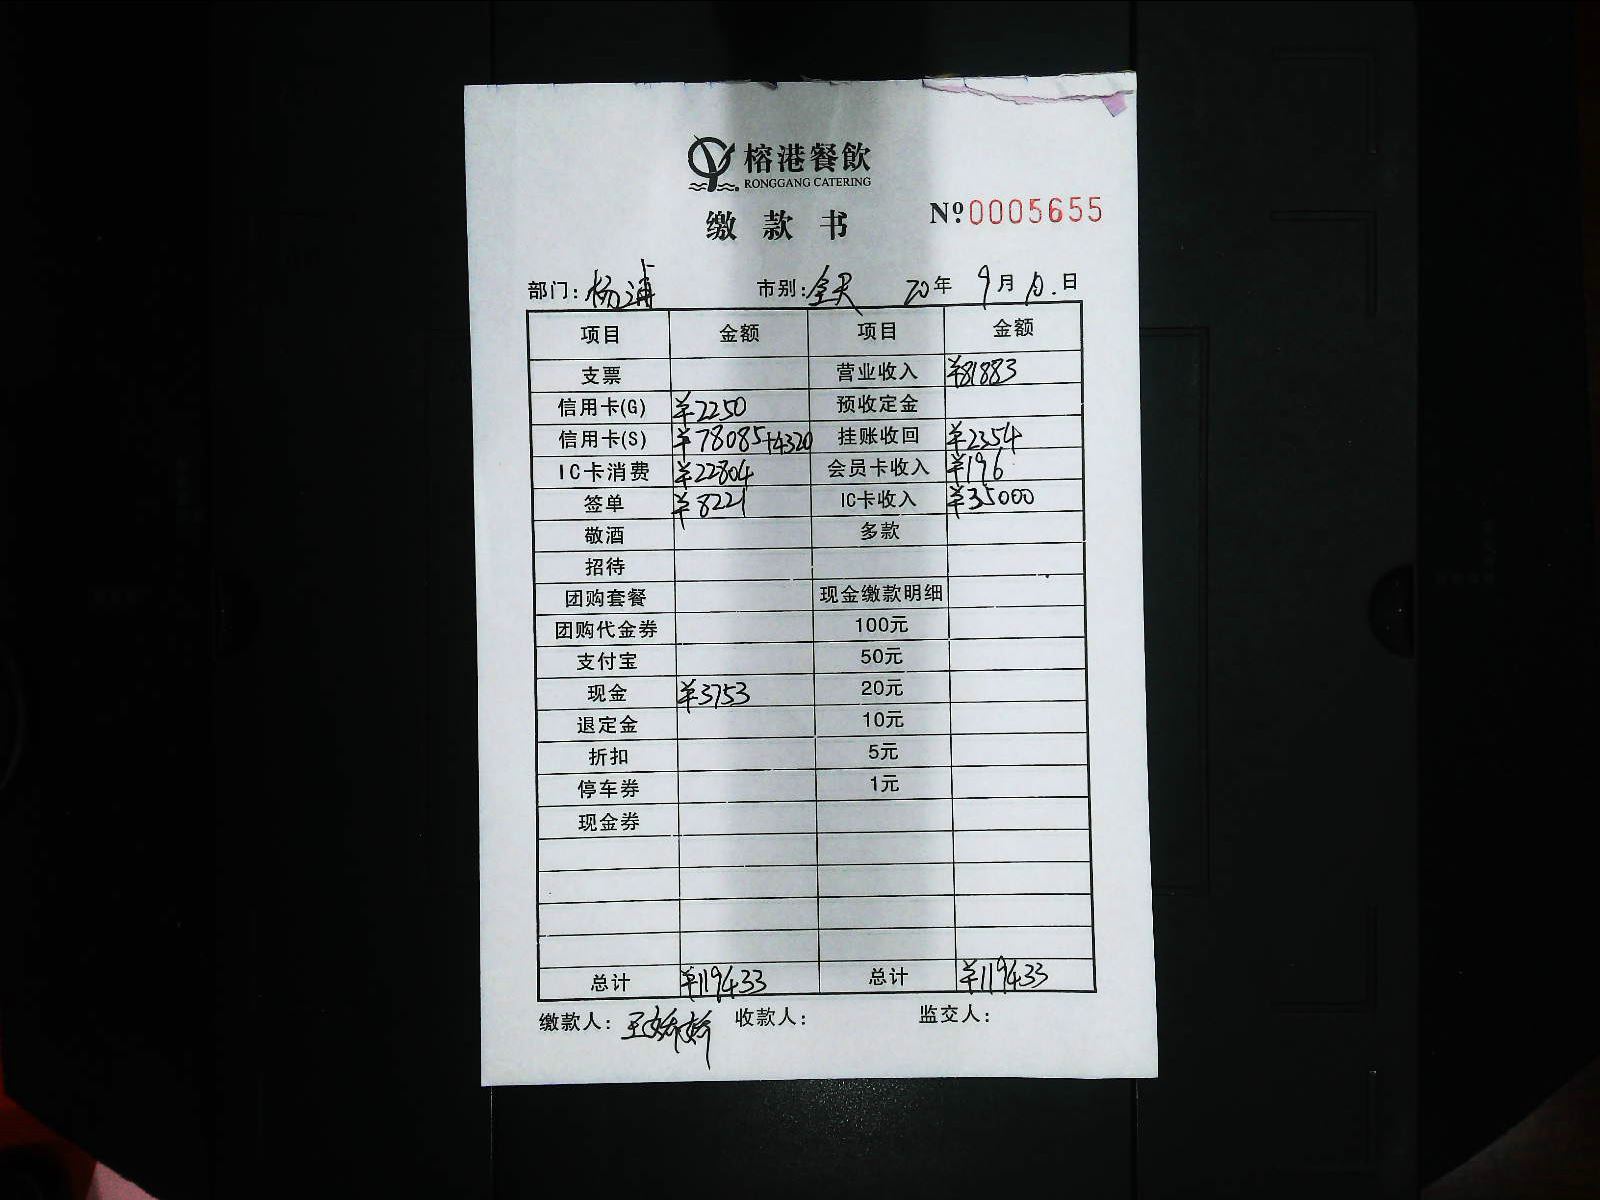 榕港餐飲
RONGGANG CATERING
缴款书 Nº 0005655
部门: 杨浦 市别: 全天 20年 9月 日
项目 金额 项目 金额
支票 营业收入 ¥81883
信用卡(G) ¥2250 预收定金
信用卡(S) ¥78085+4320 挂账收回 ¥2354
IC卡消费 ¥22804 会员卡收入 ¥196
签单 ¥8221 IC卡收入 ¥35000
敬酒 多款
招待
团购套餐 现金缴款明细
团购代金券 100元
支付宝 50元
现金 ¥3753 20元
退定金 10元
折扣 5元
停车券 1元
现金券
总计 ¥119433 总计 ¥119433
缴款人: 王娇娇 收款人: 监交人: